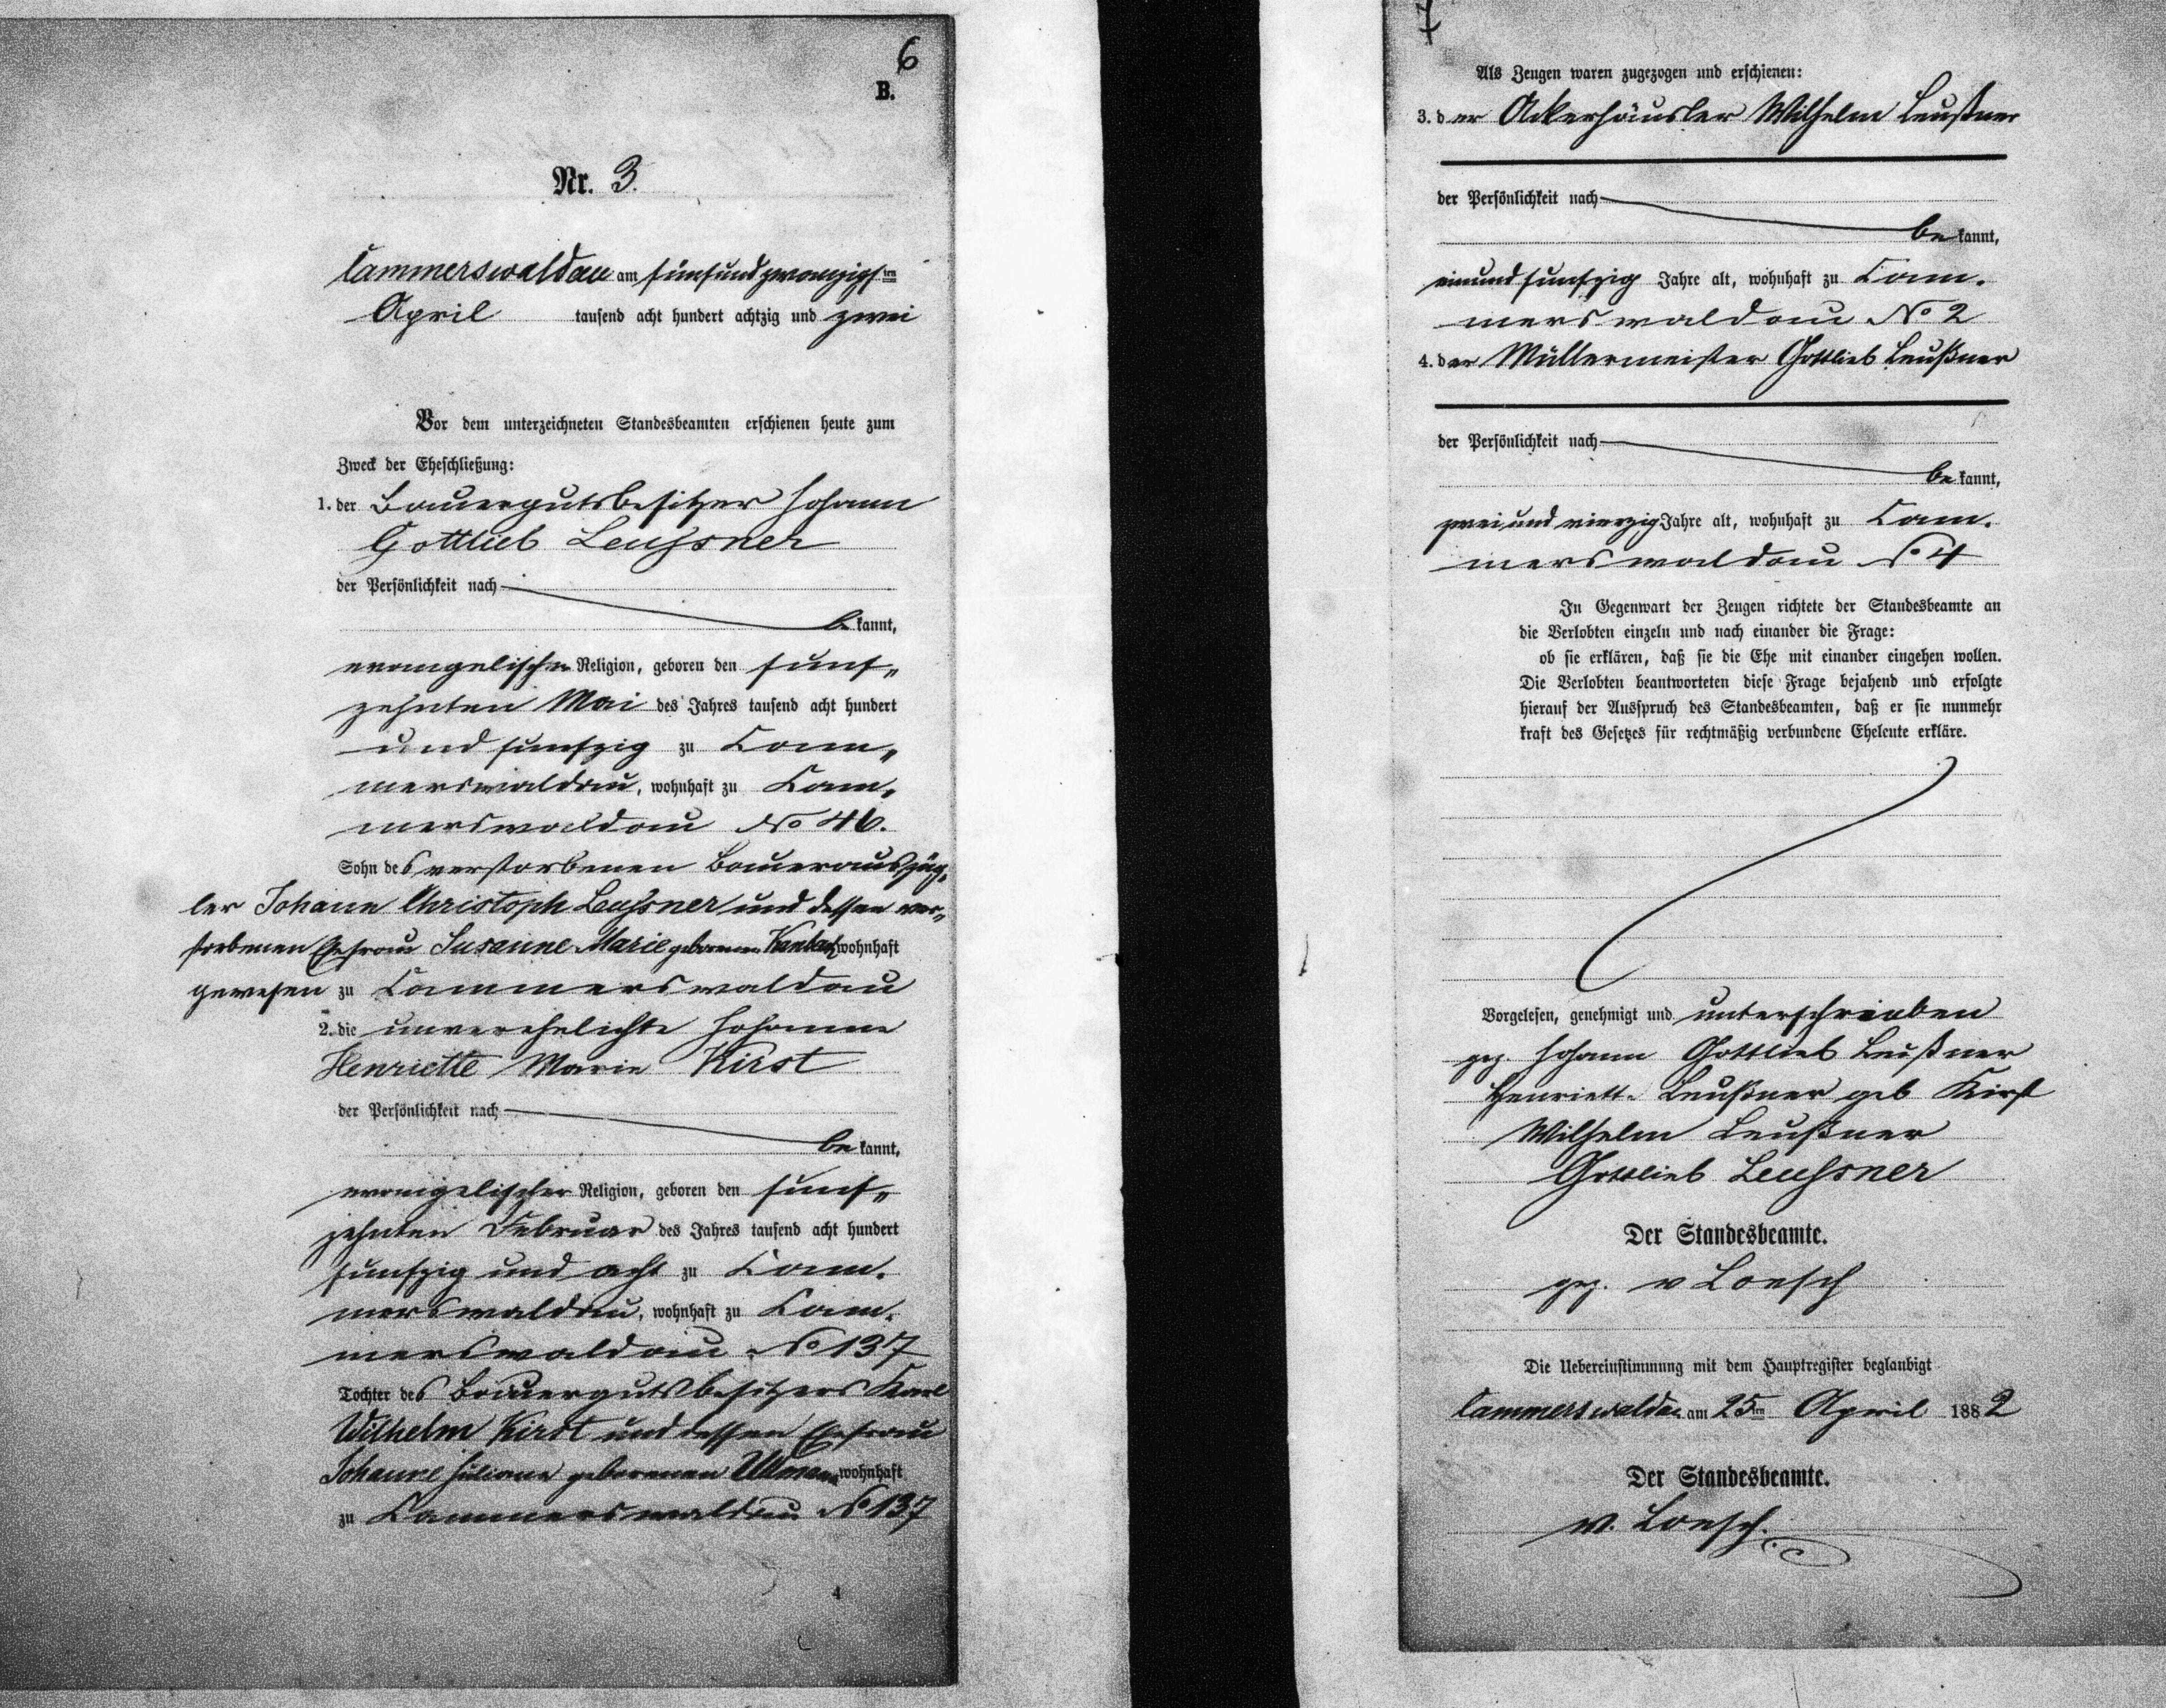 6
B.
Nr. 3.
Cammerswaldau am fünfundzwanzigsten
April tausend acht hundert achtzig und zwei
Vor dem unterzeichneten Standesbeamten erschienen heute zum
Zweck der Eheschließung:
1. der Bauergutsbesitzer Johann
Gottlieb Leussner
der Persönlichkeit nach
be kannt,
evangelischer Religion, geboren den fünf„
zehnten Mai des Jahres tausend acht hundert
und funfzig zu Cam„
merswaldau, wohnhaft zu Cam„
merswaldau No 46.
Sohn des verstorbenen Bauerauszüg„
ler Johann Christoph Leussner und dessen ver„
storbenen Ehefrau Susanne Marie geborenen wohnhaft
gewesen zu Cammerswaldau
2. die unverehelichte Johanne
Henriette Marie Kirst
der Persönlichkeit nach
be kannt,
evangelischer Religion, geboren den fünf„
zehnten Februar des Jahres tausend acht hundert
funfzig und acht zu Cam„
merswaldau, wohnhaft zu Cam„
merswaldau No 137
Tochter des Bauergutsbesitzers Karl
Wilhelm Kirst und dessen Ehefrau
Johanne Juliane geborenen wohnhaft
zu Cammerswaldau No 137
4
7
Als Zeugen waren zugezogen und erschienen:
3. der Ackerhäusler Wilhelm Leußner
der Persönlichkeit nach
be kannt,
einundfunfzig Jahre alt, wohnhaft zu Cam„
merswaldau No 2
4. der Müllermeister Gottlieb Leußner
der Persönlichkeit nach
be kannt,
zwei und vierzig Jahre alt, wohnhaft zu Cam„
merswaldau No 4
In Gegenwart der Zeugen richtete der Standesbeamte an
die Verlobten einzeln und nach einander die Frage:
ob sie erklären, daß sie die Ehe mit einander eingehen wollen.
Die Verlobten beantworteten diese Frage bejahend und erfolgte
hierauf der Ausspruch des Standesbeamten, daß er sie nunmehr
kraft des Gesetzes für rechtmäßig verbundene Eheleute erkläre.
Vorgelesen, genehmigt und unterschrieben
gez. Johann Gottlieb Leußner
Henriette Leußner geb Kirst
Wilhelm Leußner
Gottlieb Leussner
Der Standesbeamte.
gez. v Loesch
Die Uebereinstimmung mit dem Hauptregister beglaubigt
Cammerswaldau am 25ten April 1882
Der Standesbeamte.
v. Loesch.